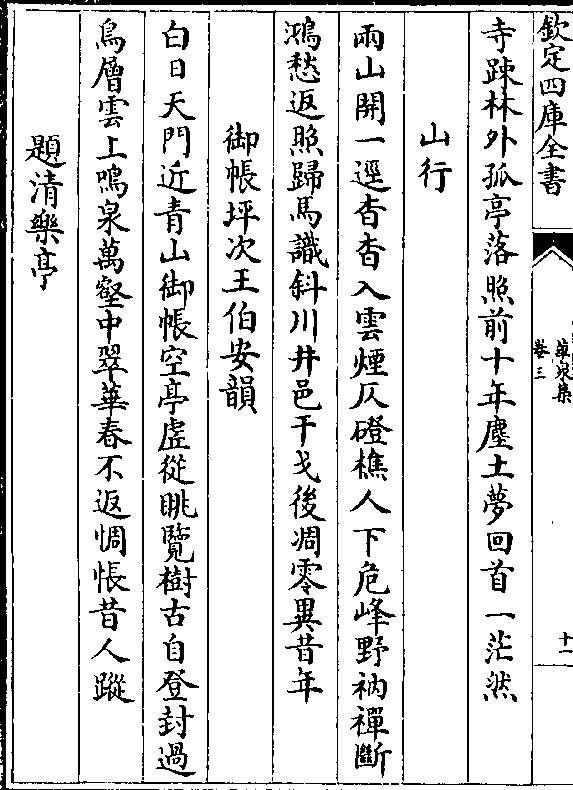 欽定四庫全書
卷三
十一
寺踈林外孤亭落照前十年塵土夢回首一茫然
山行
兩山開一逕杳杳入雲煙仄磴樵人下危峰野衲禪斷
鴻愁返照歸馬識斜川井邑干戈後凋零異昔年
御帳坪次王伯安韻
白日天門近青山御帳空亭虛從眺覽樹古自登封過
鳥層雲上鳴泉萬壑中翠華春不返惆悵昔人蹤
題清樂亭